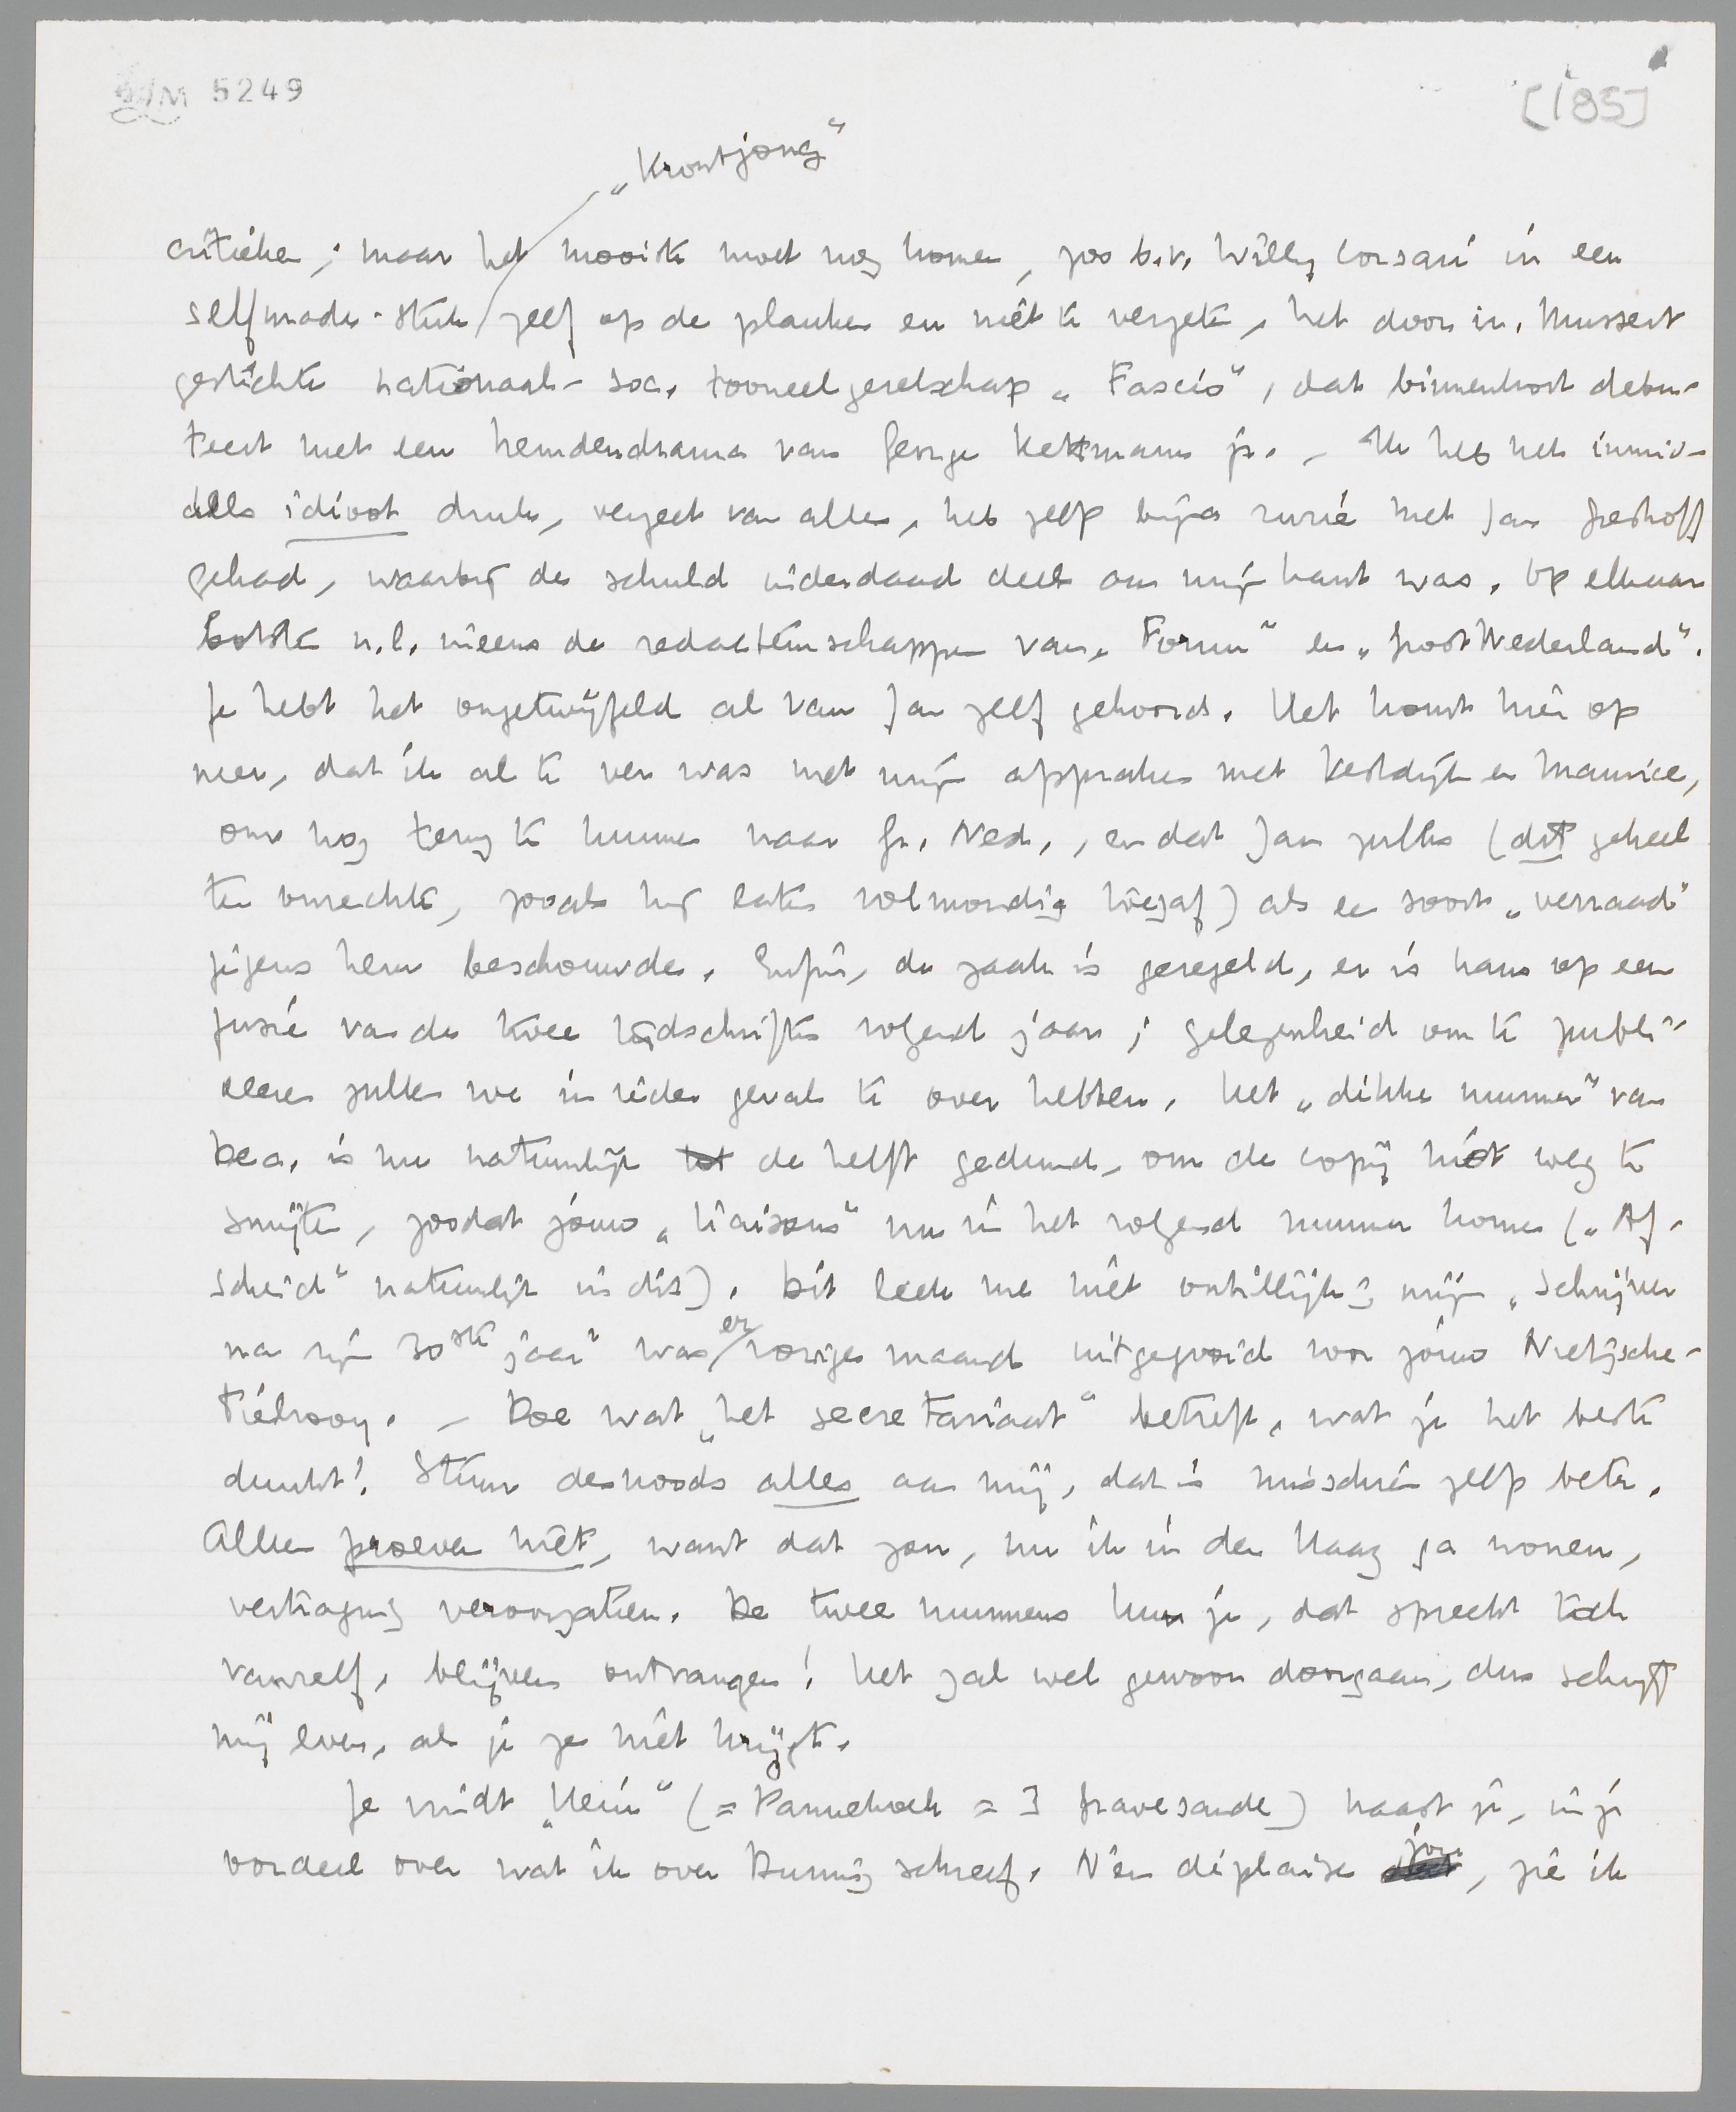 5249
[185]
„Krontjong"
critieken; maar het mooiste moet nog komen, zoo b.v. Willy Corsari in een
selfmade-stuk zelf op de planken en niet te vergeten, het door ir. Mussert
gestichte nationaal-soc. tooneelgezelschap „Fascio", dat binnenkort debu-
teert met een hemdendrama van George Kettmann jr. – Ik heb het inmid-
dels idioot druk, vergeet van alles, heb zelf bijna ruzie met Jan Greshoff
gehad, waarbij de schuld inderdaad deels aan mijn kant was. Op elkaar
botsten n.l. ineens de redacteurschappen van „Forum" en „Groot Nederland".
Je hebt het ongetwijfeld al van Jan zelf gehoord. Het komt hier op
neer, dat ik al te ver was met mijn afspraken met Kestdijk en Maurice,
om nog terug te kunnen naar Gr. Ned., en dat Jan zulks (dit geheel
ten onrechte, zooals hij later volmondig toegaf) als een soort „verraad"
jegens hem beschouwde. Enfin, de zaak is geregeld, er is kans op een
fusie van de twee tijdschriften volgend jaar; gelegenheid om te publi-
ceeren zullen we in ieder geval te over hebben. Het „dikke nummer" van
Dec. is nu natuurlijk de helft gedund, om de copij niet weg te
smijten, zoodat jouw „liaisons" nu in het volgend nummer komen („Af-
scheid" natuurlijk in dit). Dit leek me niet onbillijk; mijn „Schrijver
na zijn 30ste jaar" was er vorige maand uitgegooid voor jouw Nietzsche-
Tielrooy. – Doe wat „het secretariaat" betreft, wat je het beste
dunkt! Stuur desnoods alles aan mij, dat is misschien zelfs beter.
Alleen proeven niet, want dat zou, nu ik in den Haag ga wonen,
vertraging veroorzaken. De twee nummers kun je, dat spreekt toch
vanzelf, blijven ontvangen! Het zal wel gewoon doorgaan, dus schrijf
mij even, als je ze niet krijgt.
Je vindt „Hein" (= Pannekoek = 's Gravesande) naast je, in je
oordeel over wat ik over Buning schreef. N'en déplaise jou, zie ik